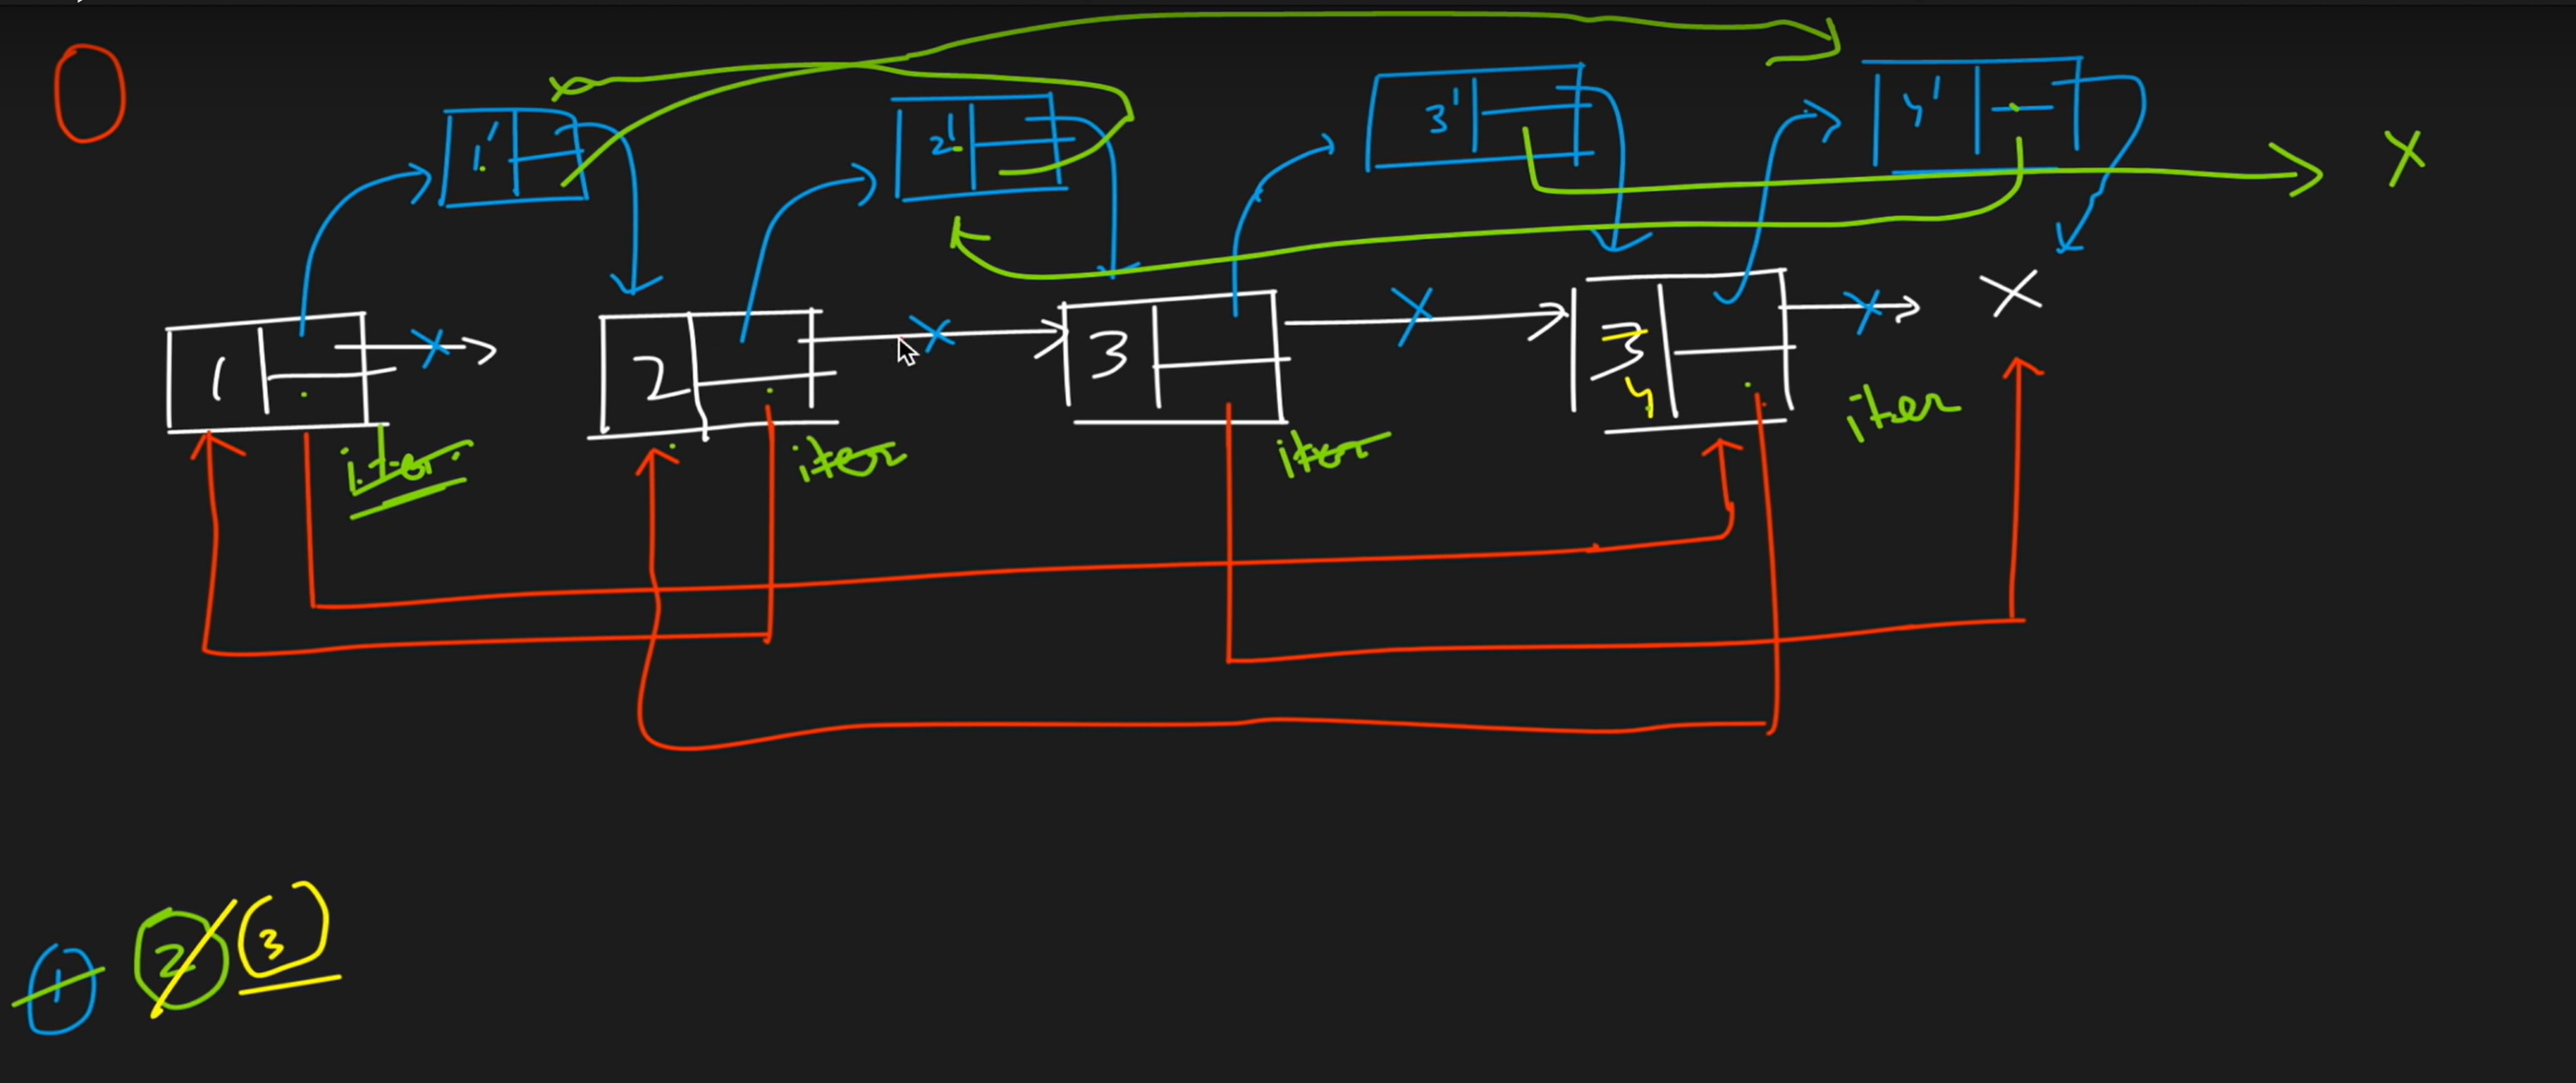 1' 2' 3' 4' X
1 2 3 3 4 X
iter iter iter iter
1 2 3